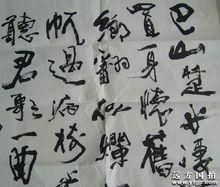 巴山楚水凄
置身懷舊
鄉翻似爛
帆過病樹
聽君歌一曲
远方国拍